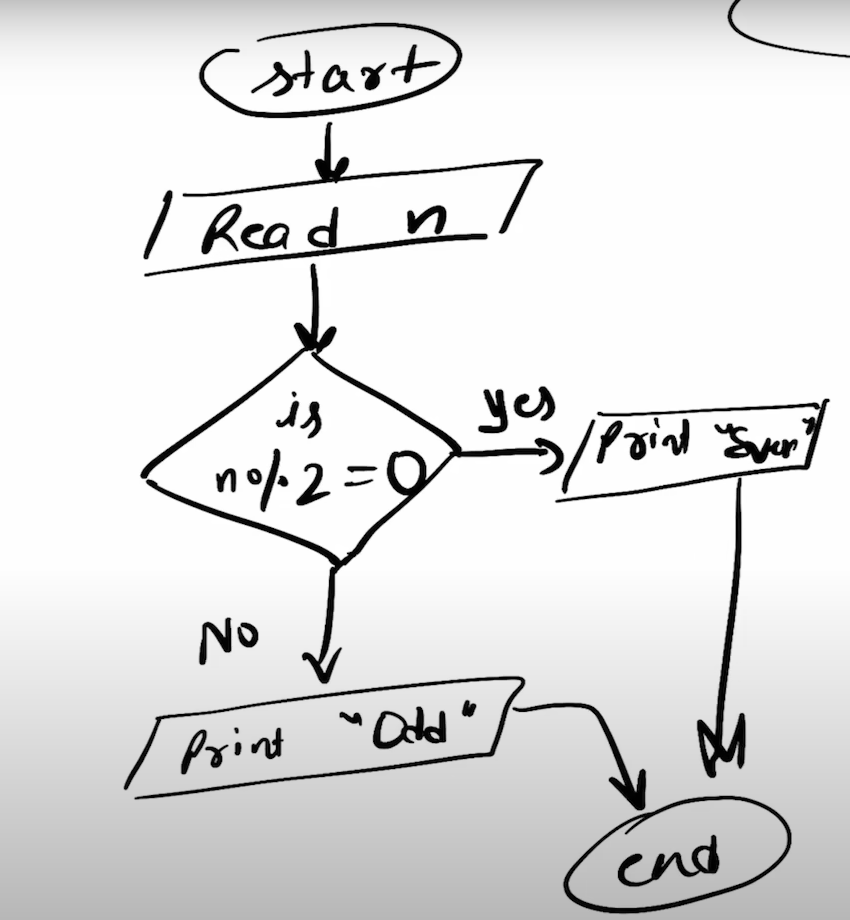 start
Read n
is
n%2=0
yes
Print "Even"
No
Print "Odd"
end